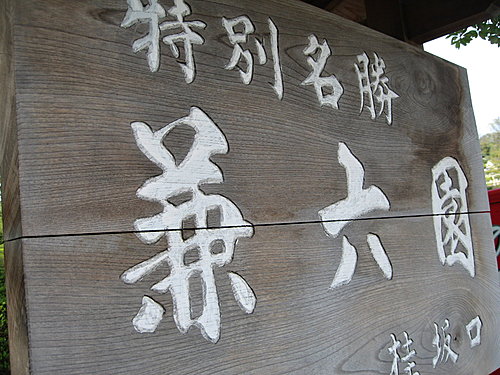 特別名勝
兼六園
桂坂口